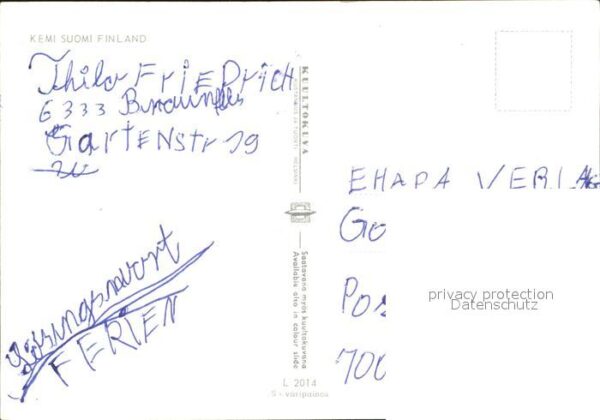 KEMI SUOMI FINLAND
Thilo FriEDrich
6333 Braunfels
GartENstr 19
Lösungswort
FERIEN
KUULTOKUVA
Saatavana myös kuultokuvana
Available also in colour slide
L 2014
EHAPA VERL
Go
Pos
700
privacy protection
Datenschutz